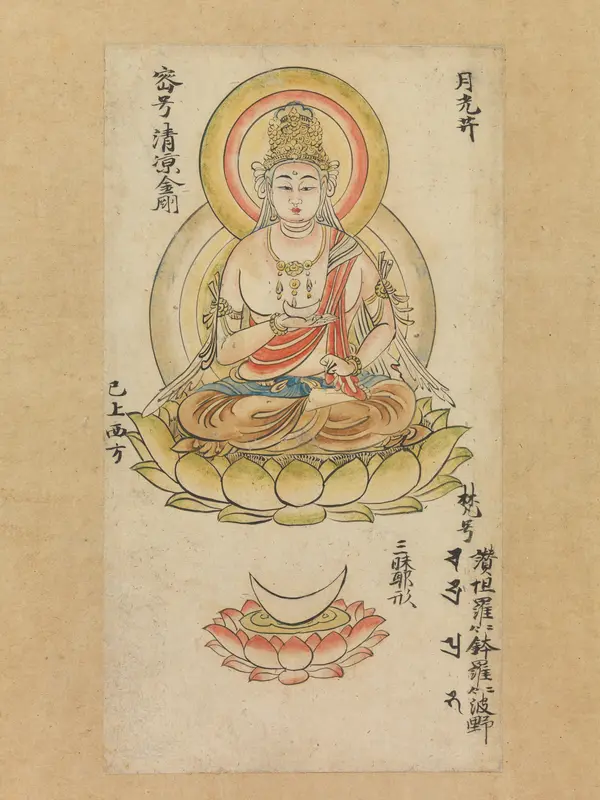 月光𦬇
密号清凉金剛
已上西方
梵号
讃怛羅二合鉢羅二合波野
三昧耶形